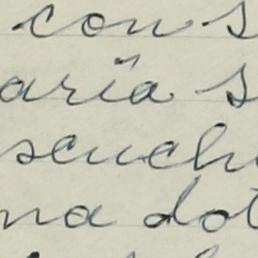 con s
aría s
scuch
na dot